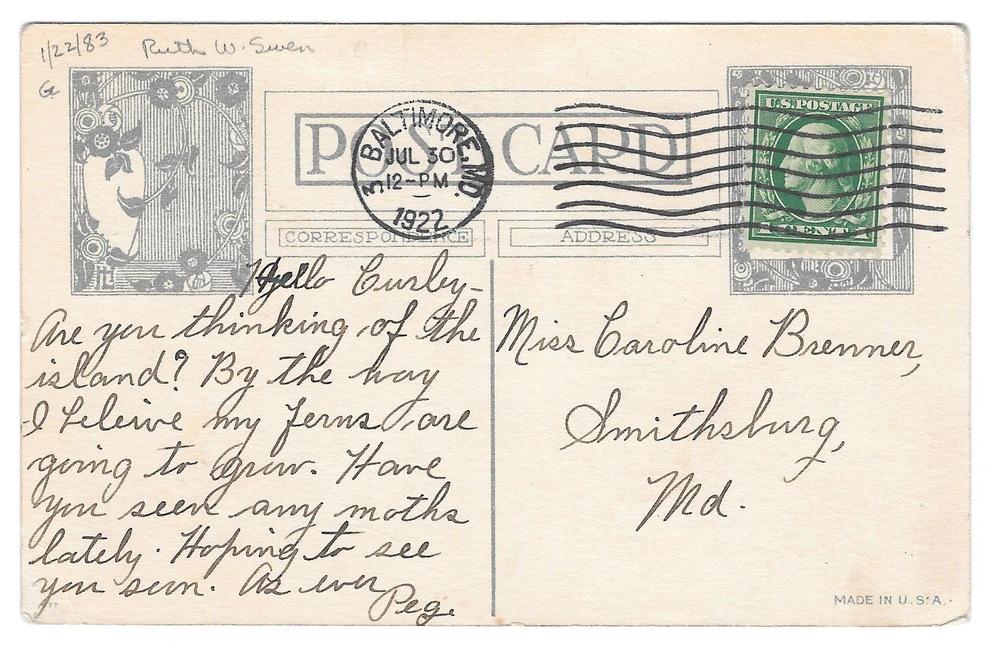 1/22/83 Ruth W. Swen
G
U.S. POSTAGE
POST CARD
3 BALTIMORE, MD.
JUL 30
12-PM
1922
CORRESPONDENCE
ADDRESS
Hello Curley-
Are you thinking of the
island? By the way
I beleive my ferns are
going to grow. Have
you seen any moths
lately. Hoping to see
you soon. As ever
Peg.
Miss Caroline Brenner,
Smithsburg,
Md.
MADE IN U.S.A.